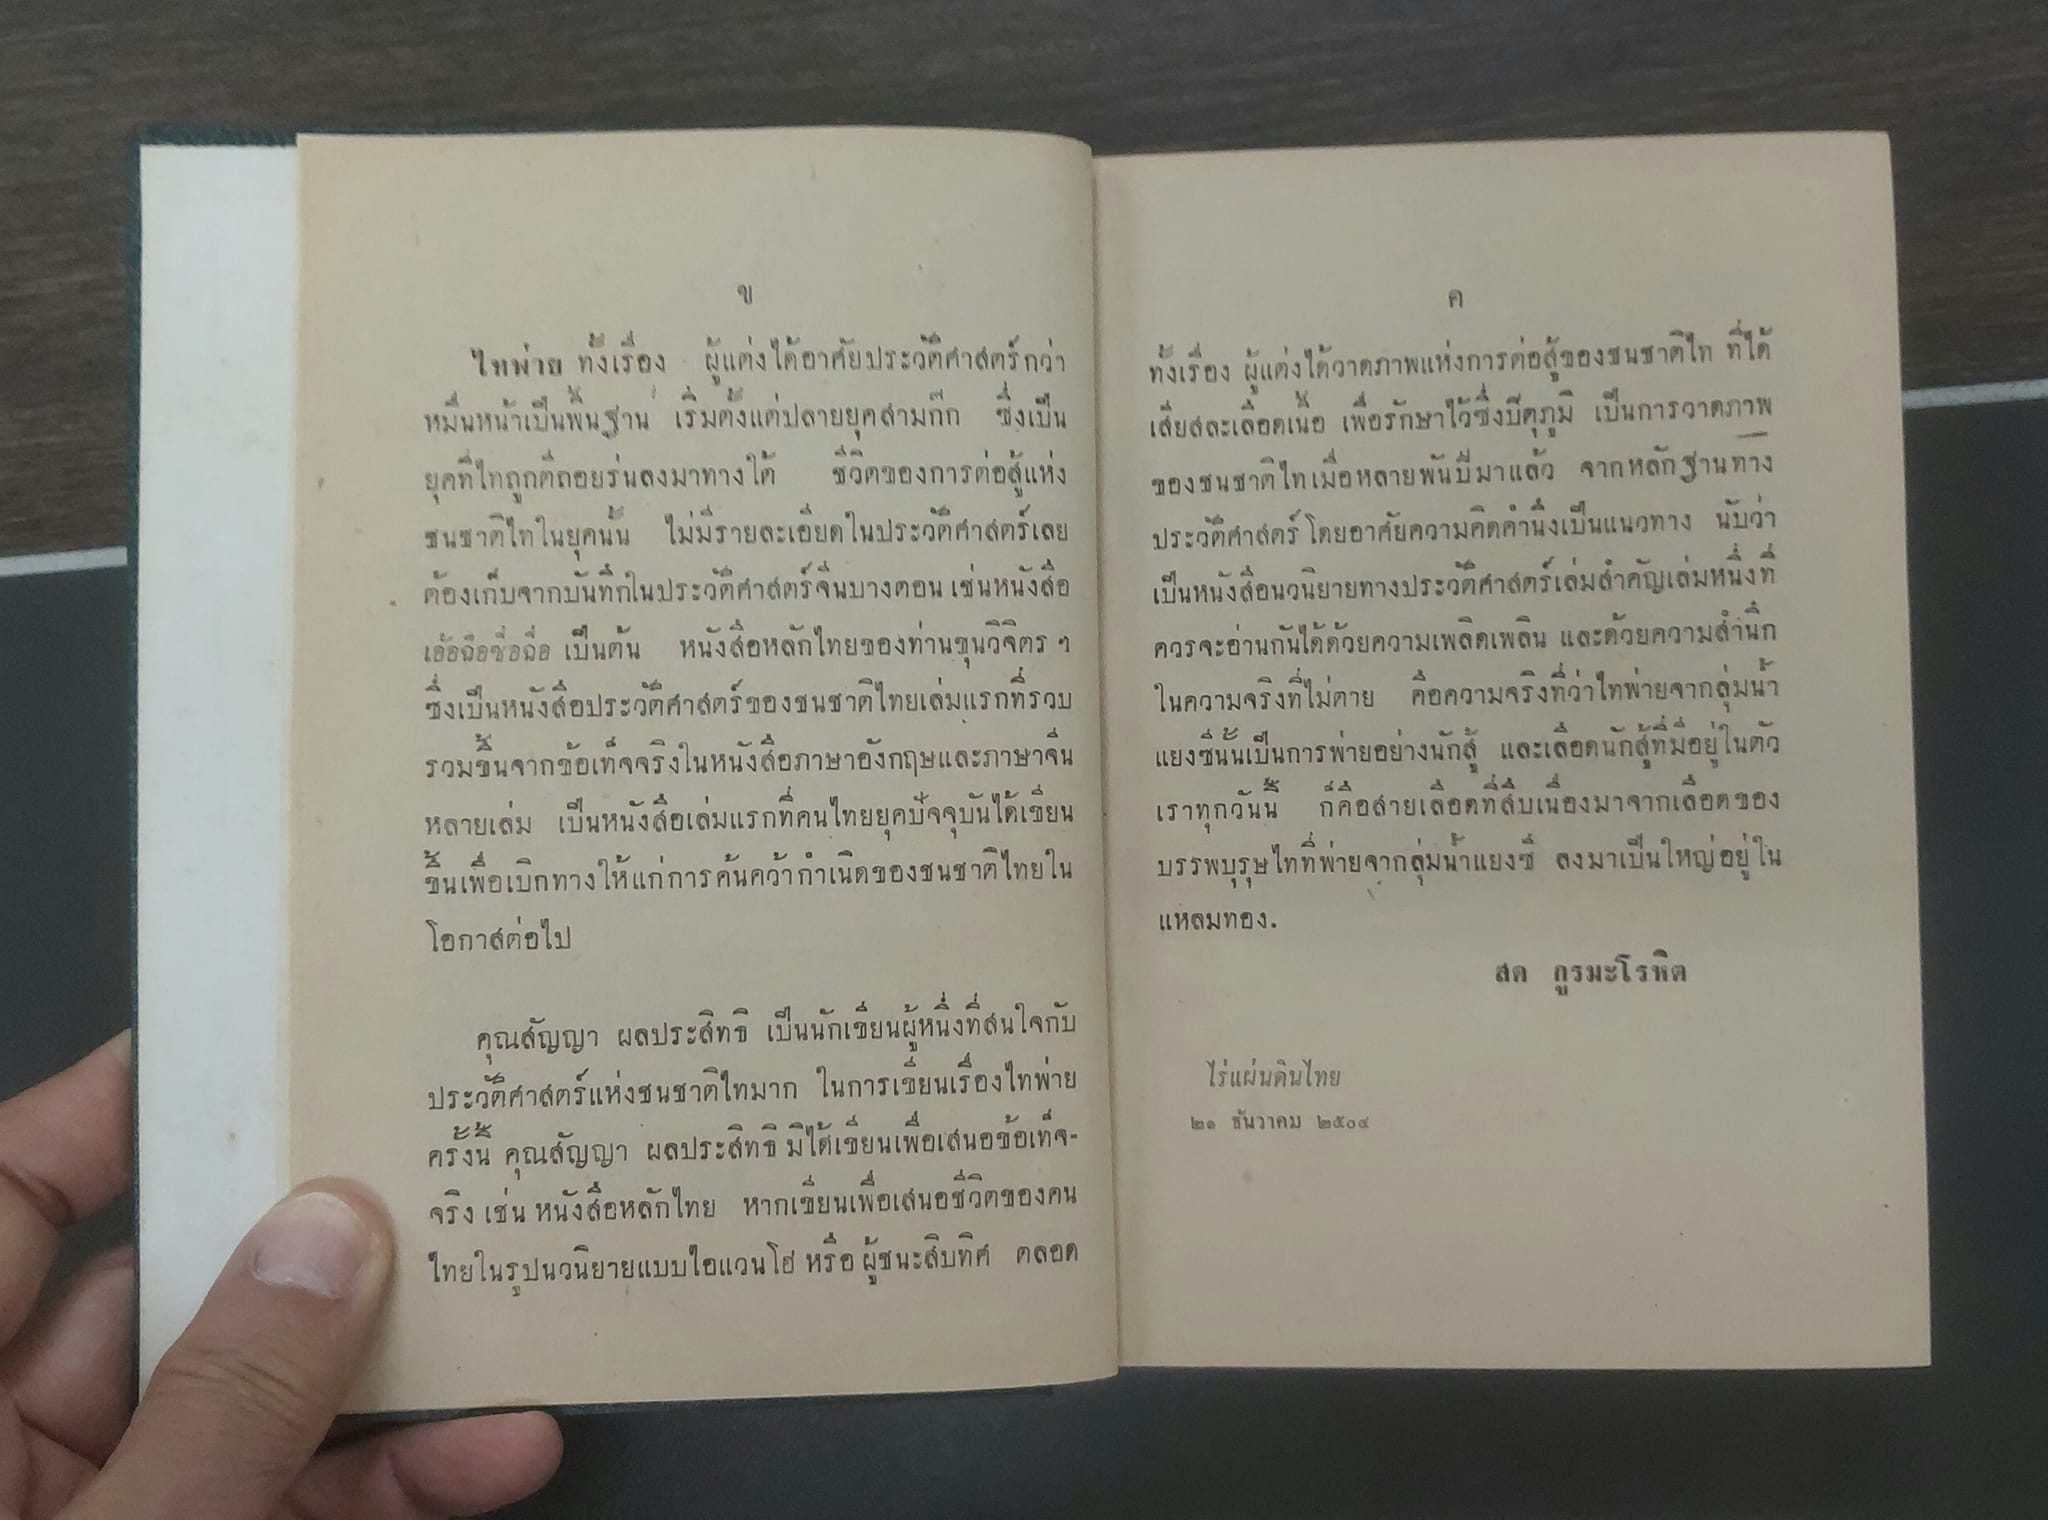 ข
ไทพ่าย ทั้งเรื่อง ผู้แต่งได้อาศัยประวัติศาสตร์กว่า
หมื่นหน้าเป็นพื้นฐาน เริ่มตั้งแต่ปลายยุคสามก๊ก ซึ่งเป็น
ยุคที่ไทถูกตีถอยร่นลงมาทางใต้ ชีวิตของการต่อสู้แห่ง
ชนชาติไทในยุคนั้น ไม่มีรายละเอียดในประวัติศาสตร์เลย
ต้องเก็บจากบันทึกในประวัติศาสตร์จีนบางตอน เช่นหนังสือ
เอ้อฉือซื่อฉื่อ เป็นต้น หนังสือหลักไทยของท่านขุนวิจิตร ฯ
ซึ่งเป็นหนังสือประวัติศาสตร์ของชนชาติไทยเล่มแรกที่รวบ
รวมขึ้นจากข้อเท็จจริงในหนังสือภาษาอังกฤษและภาษาจีน
หลายเล่ม เป็นหนังสือเล่มแรกที่คนไทยยุคปัจจุบันได้เขียน
ขึ้นเพื่อเบิกทางให้แก่การค้นคว้ากำเนิดของชนชาติไทยใน
โอกาสต่อไป
คุณสัญญา ผลประสิทธิ เป็นนักเขียนผู้หนึ่งที่สนใจกับ
ประวัติศาสตร์แห่งชนชาติไทมาก ในการเขียนเรื่องไทพ่าย
ครั้งนี้ คุณสัญญา ผลประสิทธิ มิได้เขียนเพื่อเสนอข้อเท็จ-
จริง เช่น หนังสือหลักไทย หากเขียนเพื่อเสนอชีวิตของคน
ไทยในรูปนวนิยายแบบไอแวนโฮ หรือ ผู้ชนะสิบทิศ ตลอด
ค
ทั้งเรื่อง ผู้แต่งได้วาดภาพแห่งการต่อสู้ของชนชาติไท ที่ได้
เสียสละเลือดเนื้อ เพื่อรักษาไว้ซึ่งปีตุภูมิ เป็นการวาดภาพ
ของชนชาติไทเมื่อหลายพันปีมาแล้ว จากหลักฐานทาง
ประวัติศาสตร์ โดยอาศัยความคิดคำนึงเป็นแนวทาง นับว่า
เป็นหนังสือนวนิยายทางประวัติศาสตร์เล่มสำคัญเล่มหนึ่งที่
ควรจะอ่านกันได้ด้วยความเพลิดเพลิน และด้วยความสำนึก
ในความจริงที่ไม่ตาย คือความจริงที่ว่าไทพ่ายจากลุ่มน้ำ
แยงซีนั้นเป็นการพ่ายอย่างนักสู้ และเลือดนักสู้ที่มีอยู่ในตัว
เราทุกวันนี้ ก็คือสายเลือดที่สืบเนื่องมาจากเลือดของ
บรรพบุรุษไทที่พ่ายจากลุ่มน้ำแยงซี ลงมาเป็นใหญ่อยู่ใน
แหลมทอง.
สด กูรมะโรหิต
ไร่แผ่นดินไทย
๒๑ ธันวาคม ๒๕๐๔